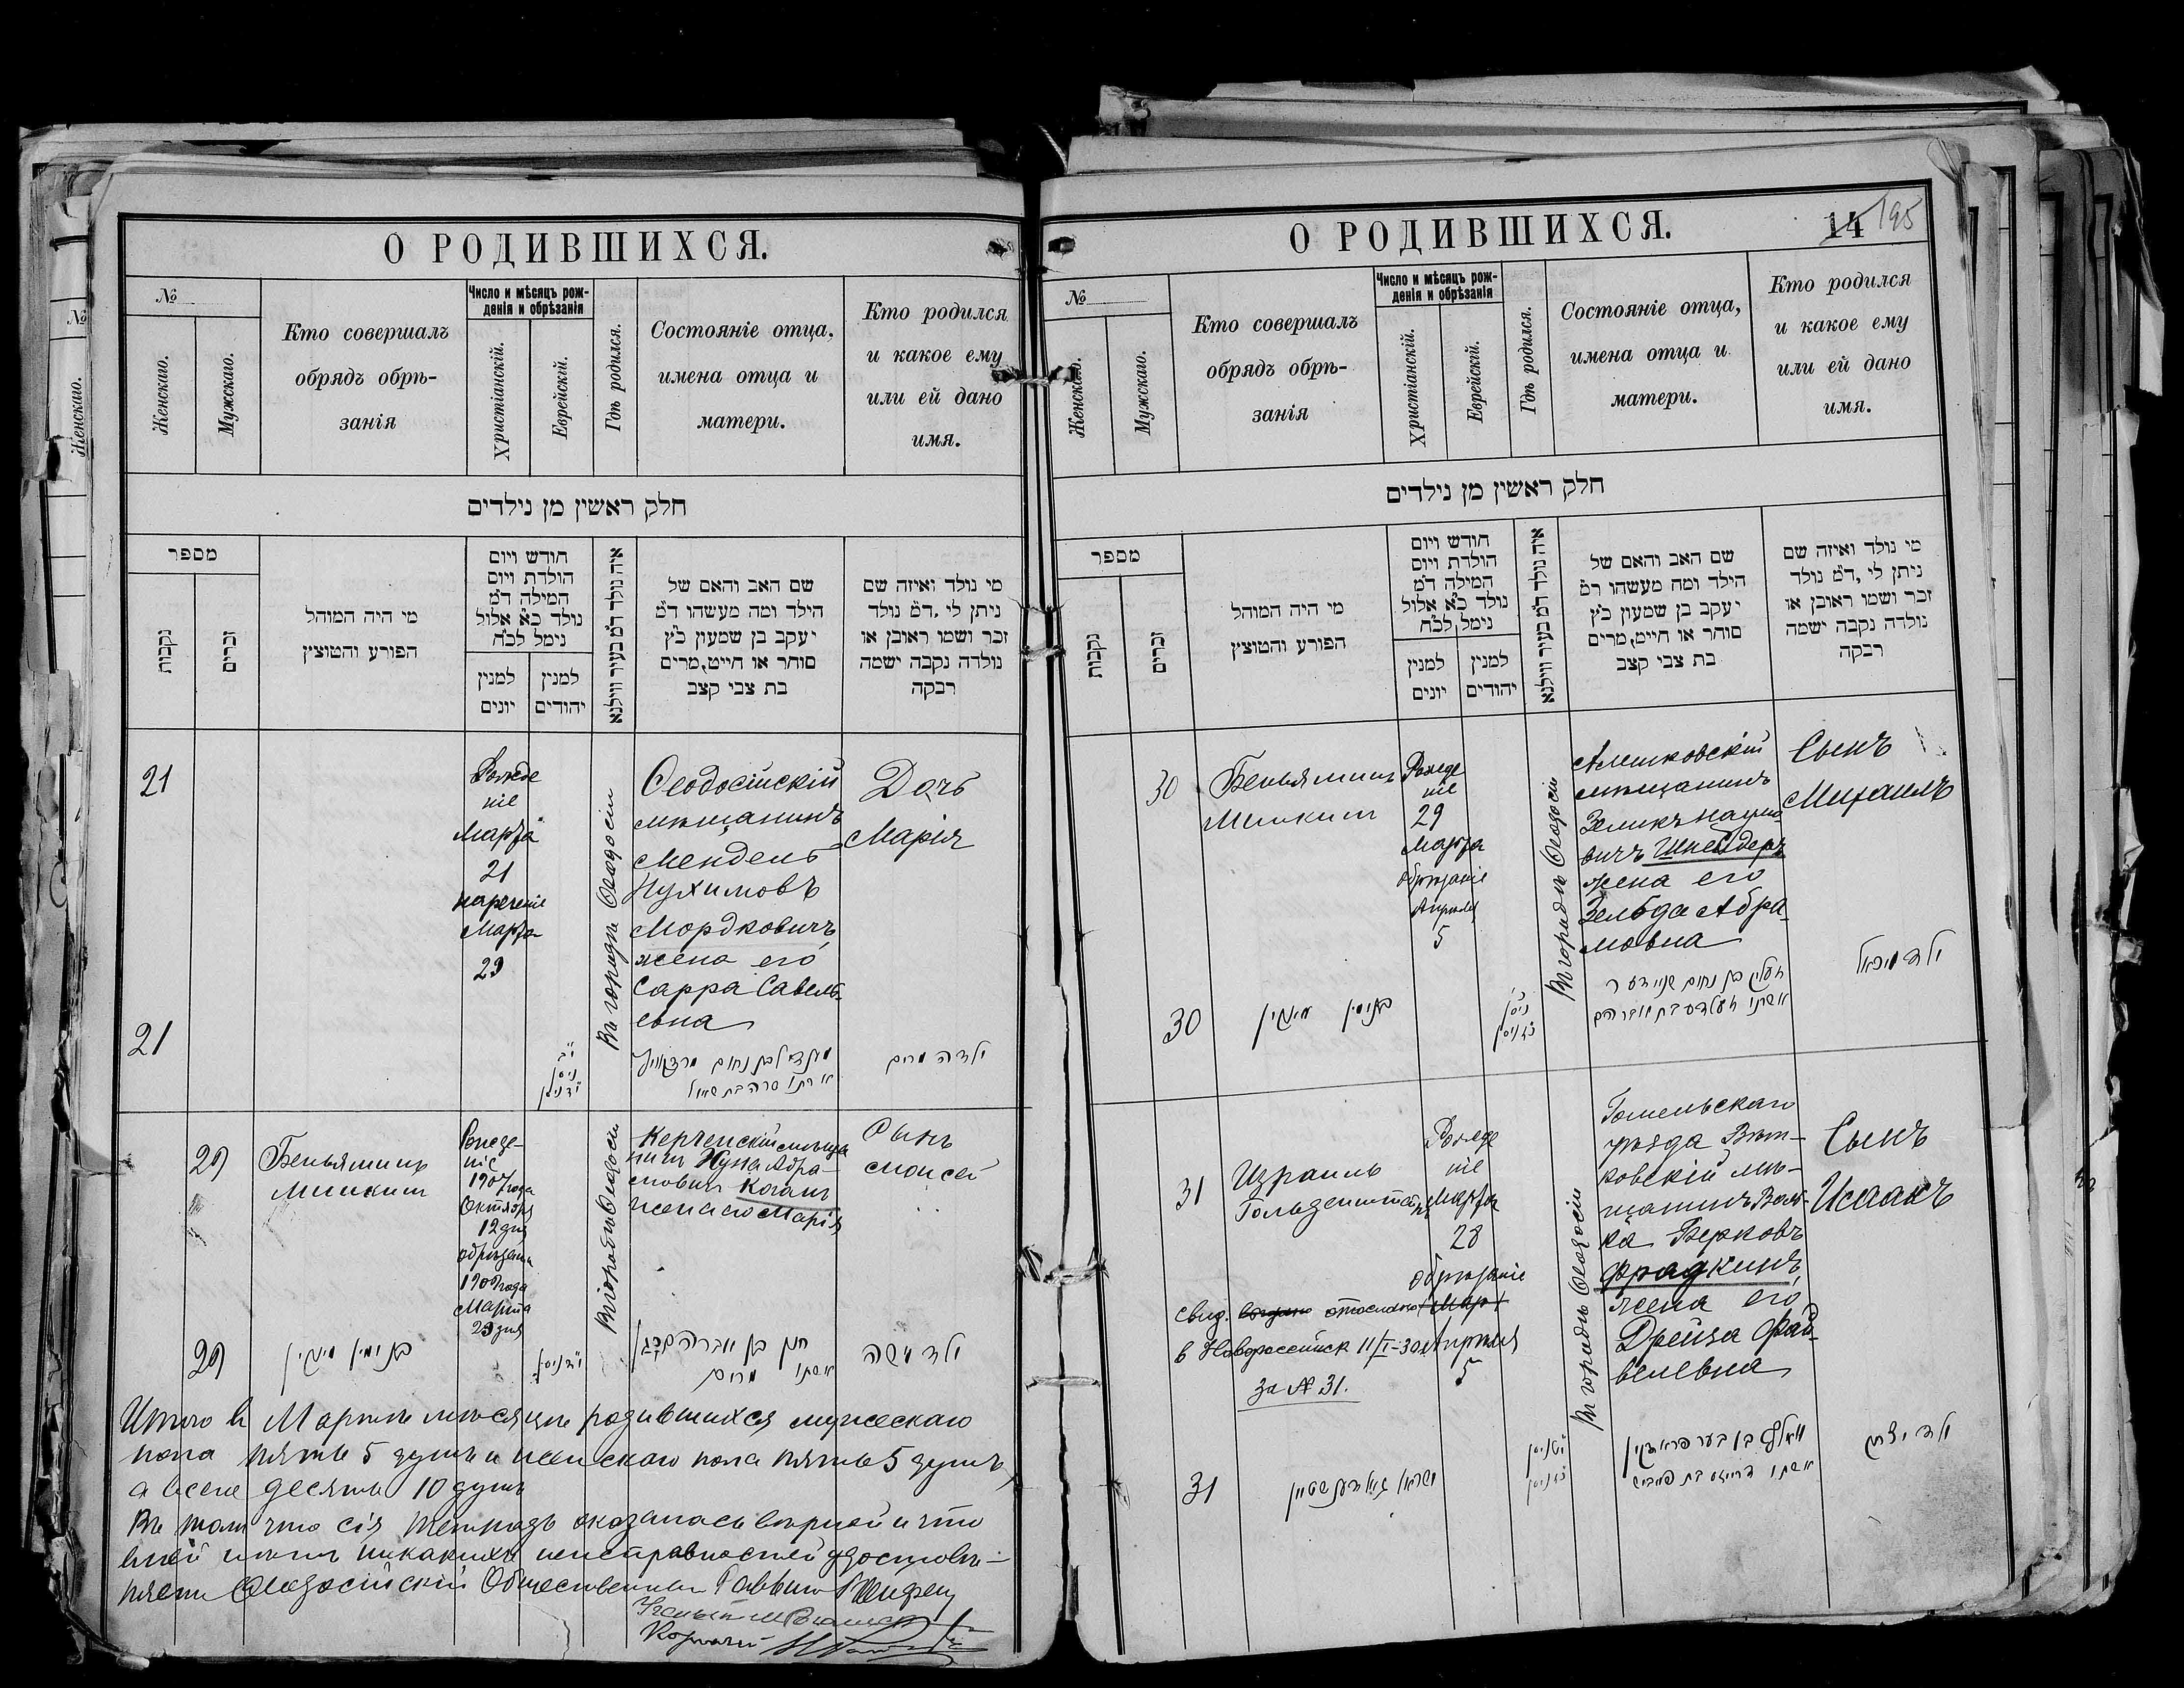 О РОДИВШИХСЯ.
№
Женскаго.
Мужскаго.
Кто совершалъ
обрядъ обрѣ-
занія
Число и мѣсяцъ рож-
денія и обрѣзанія
Христіанскій.
Еврейскій.
Гдѣ родился.
Состояніе отца,
имена отца и
матери.
Кто родился
и какое ему
или ей дано
имя.
חלק ראשין מן נילדים
מספר
נקבות
זכרים
מי היה המוהל
הפורע והטוצץ
חודש ויום
הולדת ויום
המילה
נולד כ״א אלול
נימל לכ״ח
למנין
יונים
למנין
יהודים
שם האב והאם של
הילד ומה מעשהו
יעקב בן שמעון כ״ץ
סוחר או חייט, מרים
בת צבי קצב
מי נולד ואיזה שם
ניתן לי, נולד
זכר ושמו ראובן או
נולדה נקבה ישמה
רבקה
21
Рожде
ніе
Марта
21
нареченіе
Марта
29
Въ городѣ Ѳеодосіи
Ѳеодосійскій
мѣщанинъ
Мендель
Нухимовъ
Мордковичъ,
жена его
Сарра Савель-
евна
Дочь
Марія
21
ילדה מרים
29
Беньяминъ
Минкин
Рожде-
ніе
1907 года
Октября
12 дня
обрѣзанія
1909 года
Марта
29 дня
Въ городѣ Ѳеодосіи
Керченскій мѣща
нинъ Нуна Абра-
мовичъ Коганъ
жена его Марія
Сынъ
Моисей
29
בנימין מינקין
חנן בן אברהם כהן
אשתו מרים
ילד משה
Итого въ Мартѣ мѣсяцѣ родившихся мужескаго
пола пять 5 душъ и женскаго пола пять 5 душъ,
а всего десять 10 душъ
Въ томъ что сія тетрадь оказалась вѣрной и что
въ ней нѣтъ никакихъ неисправностей удостовѣ-
ряетъ Ѳеодосійскій Общественный Раввинъ
О РОДИВШИХСЯ.
14 195
№
Женскаго.
Мужскаго.
Кто совершалъ
обрядъ обрѣ-
занія
Число и мѣсяцъ рож-
денія и обрѣзанія
Христіанскій.
Еврейскій.
Гдѣ родился.
Состояніе отца,
имена отца и
матери.
Кто родился
и какое ему
или ей дано
имя.
חלק ראשין מן נילדים
מספר
נקבות
זכרים
מי היה המוהל
הפורע והטוצץ
חודש ויום
הולדת ויום
המילה
נולד כ״א אלול
נימל לכ״ח
למנין
יונים
למנין
יהודים
שם האב והאם של
הילד ומה מעשהו
יעקב בן שמעון כ״ץ
סוחר או חייט, מרים
בת צבי קצב
מי נולד ואיזה שם
ניתן לי, נולד
זכר ושמו ראובן או
נולדה נקבה ישמה
רבקה
30
Беньяминъ
Минкин
Рожде
ніе
29
Марта
обрѣзаніе
Апрѣля
5
Въ городѣ Ѳеодосіи
Алешковскій
мѣщанинъ
Зеликъ Нахимо
вичъ Шнейдеръ
жена его
Зельда Абра-
мовна
Сынъ
Михаилъ
30
בנימין מינקין
זעליג בן נחום שניידער
אשתו זעלדע בת אברהם
ילד מיכאל
31
Израиль
Гольденштейнъ
Рожде
ніе
Марта
28
обрѣзаніе
Апрѣля
5
свид. отослано
в Новороссийск 11/I-30
за № 31.
Въ городѣ Ѳеодосіи
Гомельскаго
уѣзда Вѣт-
ковскій мѣ-
щанинъ Воль-
ка Берковъ
Фрадкинъ,
жена его
Дрейза Фай-
велевна
Сынъ
Исаакъ
31
ישראל גאלדענשטיין
וואלף בן בער פראדקין
אשתו דרייזע בת פייביש
ילד יצחק